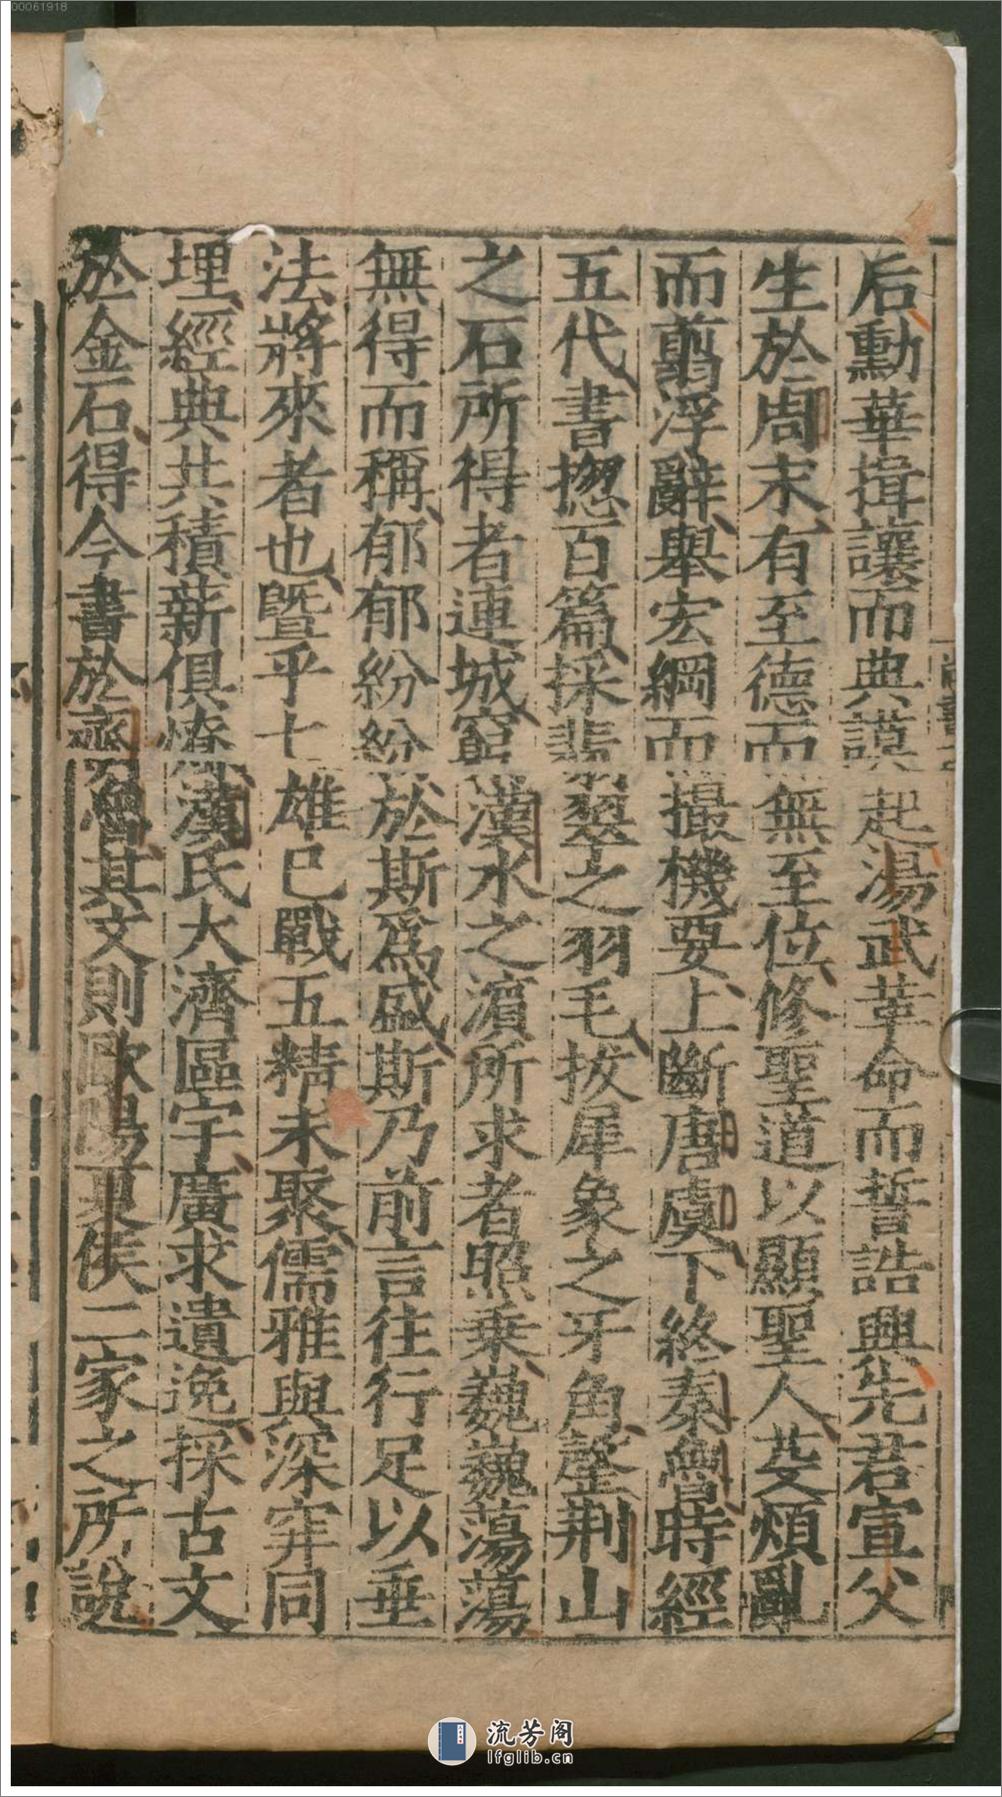 00061918
后勳華揖讓而典謨起湯武革命而誓誥興先君宣父
生於周末有至德而無至位修聖道以顯聖人芟煩亂
而翦浮辭舉宏綱而撮機要上斷唐虞下終秦魯時經
五代書揔百篇採翡翠之羽毛拔犀象之牙角罄荆山
之石所得者連城窮漢水之濱所求者照乗巍巍蕩蕩
無得而稱郁郁紛紛於斯爲盛斯乃前言往行足以垂
法將來者也曁乎七雄已戰五精未聚儒雅與深穽同
埋經典共積薪俱燎漢氏大濟區宇廣求遺逸採古文
於金石得今書於齊魯其文則歐陽夏侯二家之所說
流芳阁
lfglib.cn